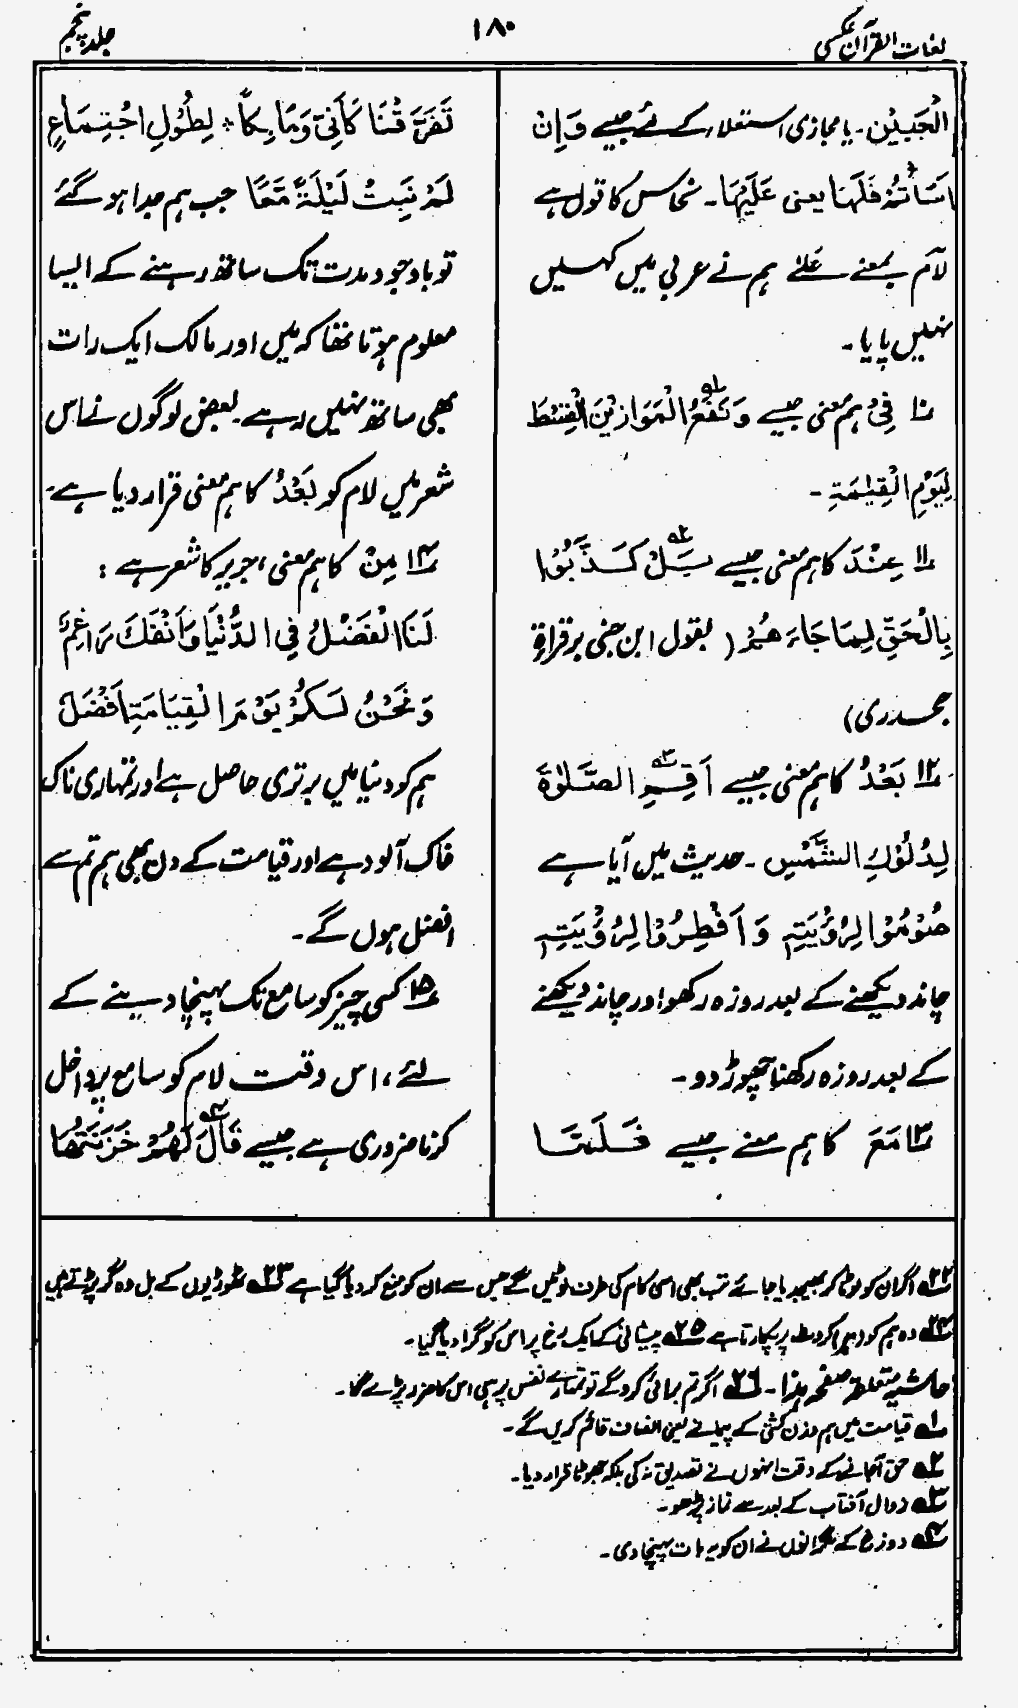 لغات القرآن عکسی
۱۸۰
جلد پنجم
الْجَبِیْنِ۔ یا مجازی استعلاء کے لئے جیسے وَاِنْ
اَسَاْتُمْ فَلَهَا یعنی عَلَیْهَا۔ نحاس کا قول ہے
لآم بمعنے عَلٰے ہم نے عربی میں کہیں
نہیں پایا۔
۱۰ فِیْ ہم معنی جیسے وَنَضَعُ الْمَوَازِیْنَ الْقِسْطَ
لِیَوْمِ الْقِیٰمَةِ۔
۱۱ عِنْدَ کا ہم معنی جیسے بَلْ کَذَّبُوْا
بِالْحَقِّ لِمَا جَاءَهُمْ (بقول ابن جنی بر قراءةِ
جحدری)
۱۲ بَعْدُ کا ہم معنی جیسے اَقِمِ الصَّلٰوةَ
لِدُلُوْكِ الشَّمْسِ۔ حدیث میں آیا ہے
صُوْمُوْا لِرُؤْیَتِهٖ وَاَفْطِرُوْا لِرُؤْیَتِهٖ
چاند دیکھنے کے بعد روزہ رکھو اور چاند دیکھنے
کے بعد روزہ رکھنا چھوڑ دو۔
۱۳ مَعَ کا ہم معنے جیسے فَلَمَّا
تَفَرَّقْنَا کَاَنِّیْ وَمَالِکًا ٭ لِطُوْلِ اجْتِمَاعٍ
لَمْ نَبِتْ لَیْلَةً مَّعًا جب ہم جدا ہو گئے
تو باوجود مدت تک ساتھ رہنے کے ایسا
معلوم ہوتا تھا کہ میں اور مالک ایک رات
بھی ساتھ نہیں رہے۔ بعض لوگوں نے اس
شعر میں لام کو بَعْدُ کا ہم معنی قرار دیا ہے۔
۱۴ مِنْ کا ہم معنی، جریر کا شعر ہے :
لَنَا الْفَضْلُ فِی الدُّنْیَا وَاَنْفُكَ رَاغِمٌ
وَنَحْنُ لَکُمْ یَوْمَ الْقِیَامَةِ اَفْضَلُ
ہم کو دنیا میں برتری حاصل ہے اور تمہاری ناک
خاک آلود ہے اور قیامت کے دن بھی ہم تم سے
افضل ہوں گے۔
۱۵ کسی چیز کو سامع تک پہنچا دینے کے
لئے، اس وقت لام کو سامع پر داخل
کرنا ضروری ہے جیسے قَالَ لَهُمْ خَزَنَتُهَا
۲۲ اگر ان کو لوٹا کر بھیجدیا جائے تب بھی اسی کام کی طرف لوٹیں گے جس سے ان کو منع کر دیا گیا ہے ۲۳ ٹھوڑیوں کے بل وہ گر پڑتے ہیں
۲۴ وہ ہم کو دہرا کروٹ پر پکارتا ہے ۲۵ پیشانی کے ایک رخ پر اس کو گرا دیا گیا۔
حاشیہ متعلقہ صفحہ ہذا۔ ۲۶ اگر تم برائی کرو گے تو تمہارے نفس پر ہی اس کا ضرر پڑے گا۔
۱ قیامت میں ہم وزن کشی کے پیمانے یعنی انصاف قائم کریں گے۔
۲ حق آجانے کے وقت انہوں نے تصدیق نہ کی بلکہ جھوٹا قرار دیا۔
۳ زوال آفتاب کے بعد سے نماز پڑھو۔
۴ دوزخ کے نگرانوں نے ان کو یہ بات پہنچا دی۔